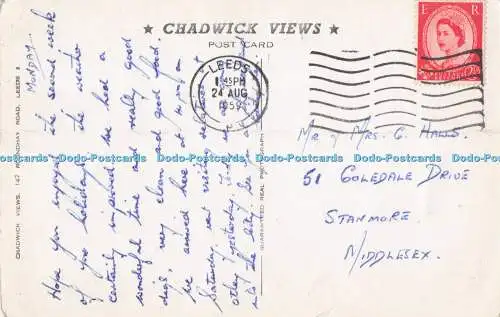 ★ CHADWICK VIEWS ★
POST CARD
LEEDS
1.45PM
24 AUG
1959
E R
MONDAY.
Hope you enjoyed the second week
of your holidays. The weather
certainly improved. We had a
wonderful time and really good
digs, very clean and good food.
We arrived here at
Saturday, went visiting relatives
Otley yesterday.
Mr & Mrs. G. HALLS.
51 COLEDALE DRIVE
STANMORE.
MIDDLESEX.
CHADWICK VIEWS, 147 ROAD, LEEDS
GUARANTEED REAL PHOTOGRAPH
Dodo-Postcards Dodo-Postcards Dodo-Postcards Dodo-Postcards Dodo-Postcards Dodo-Postcards